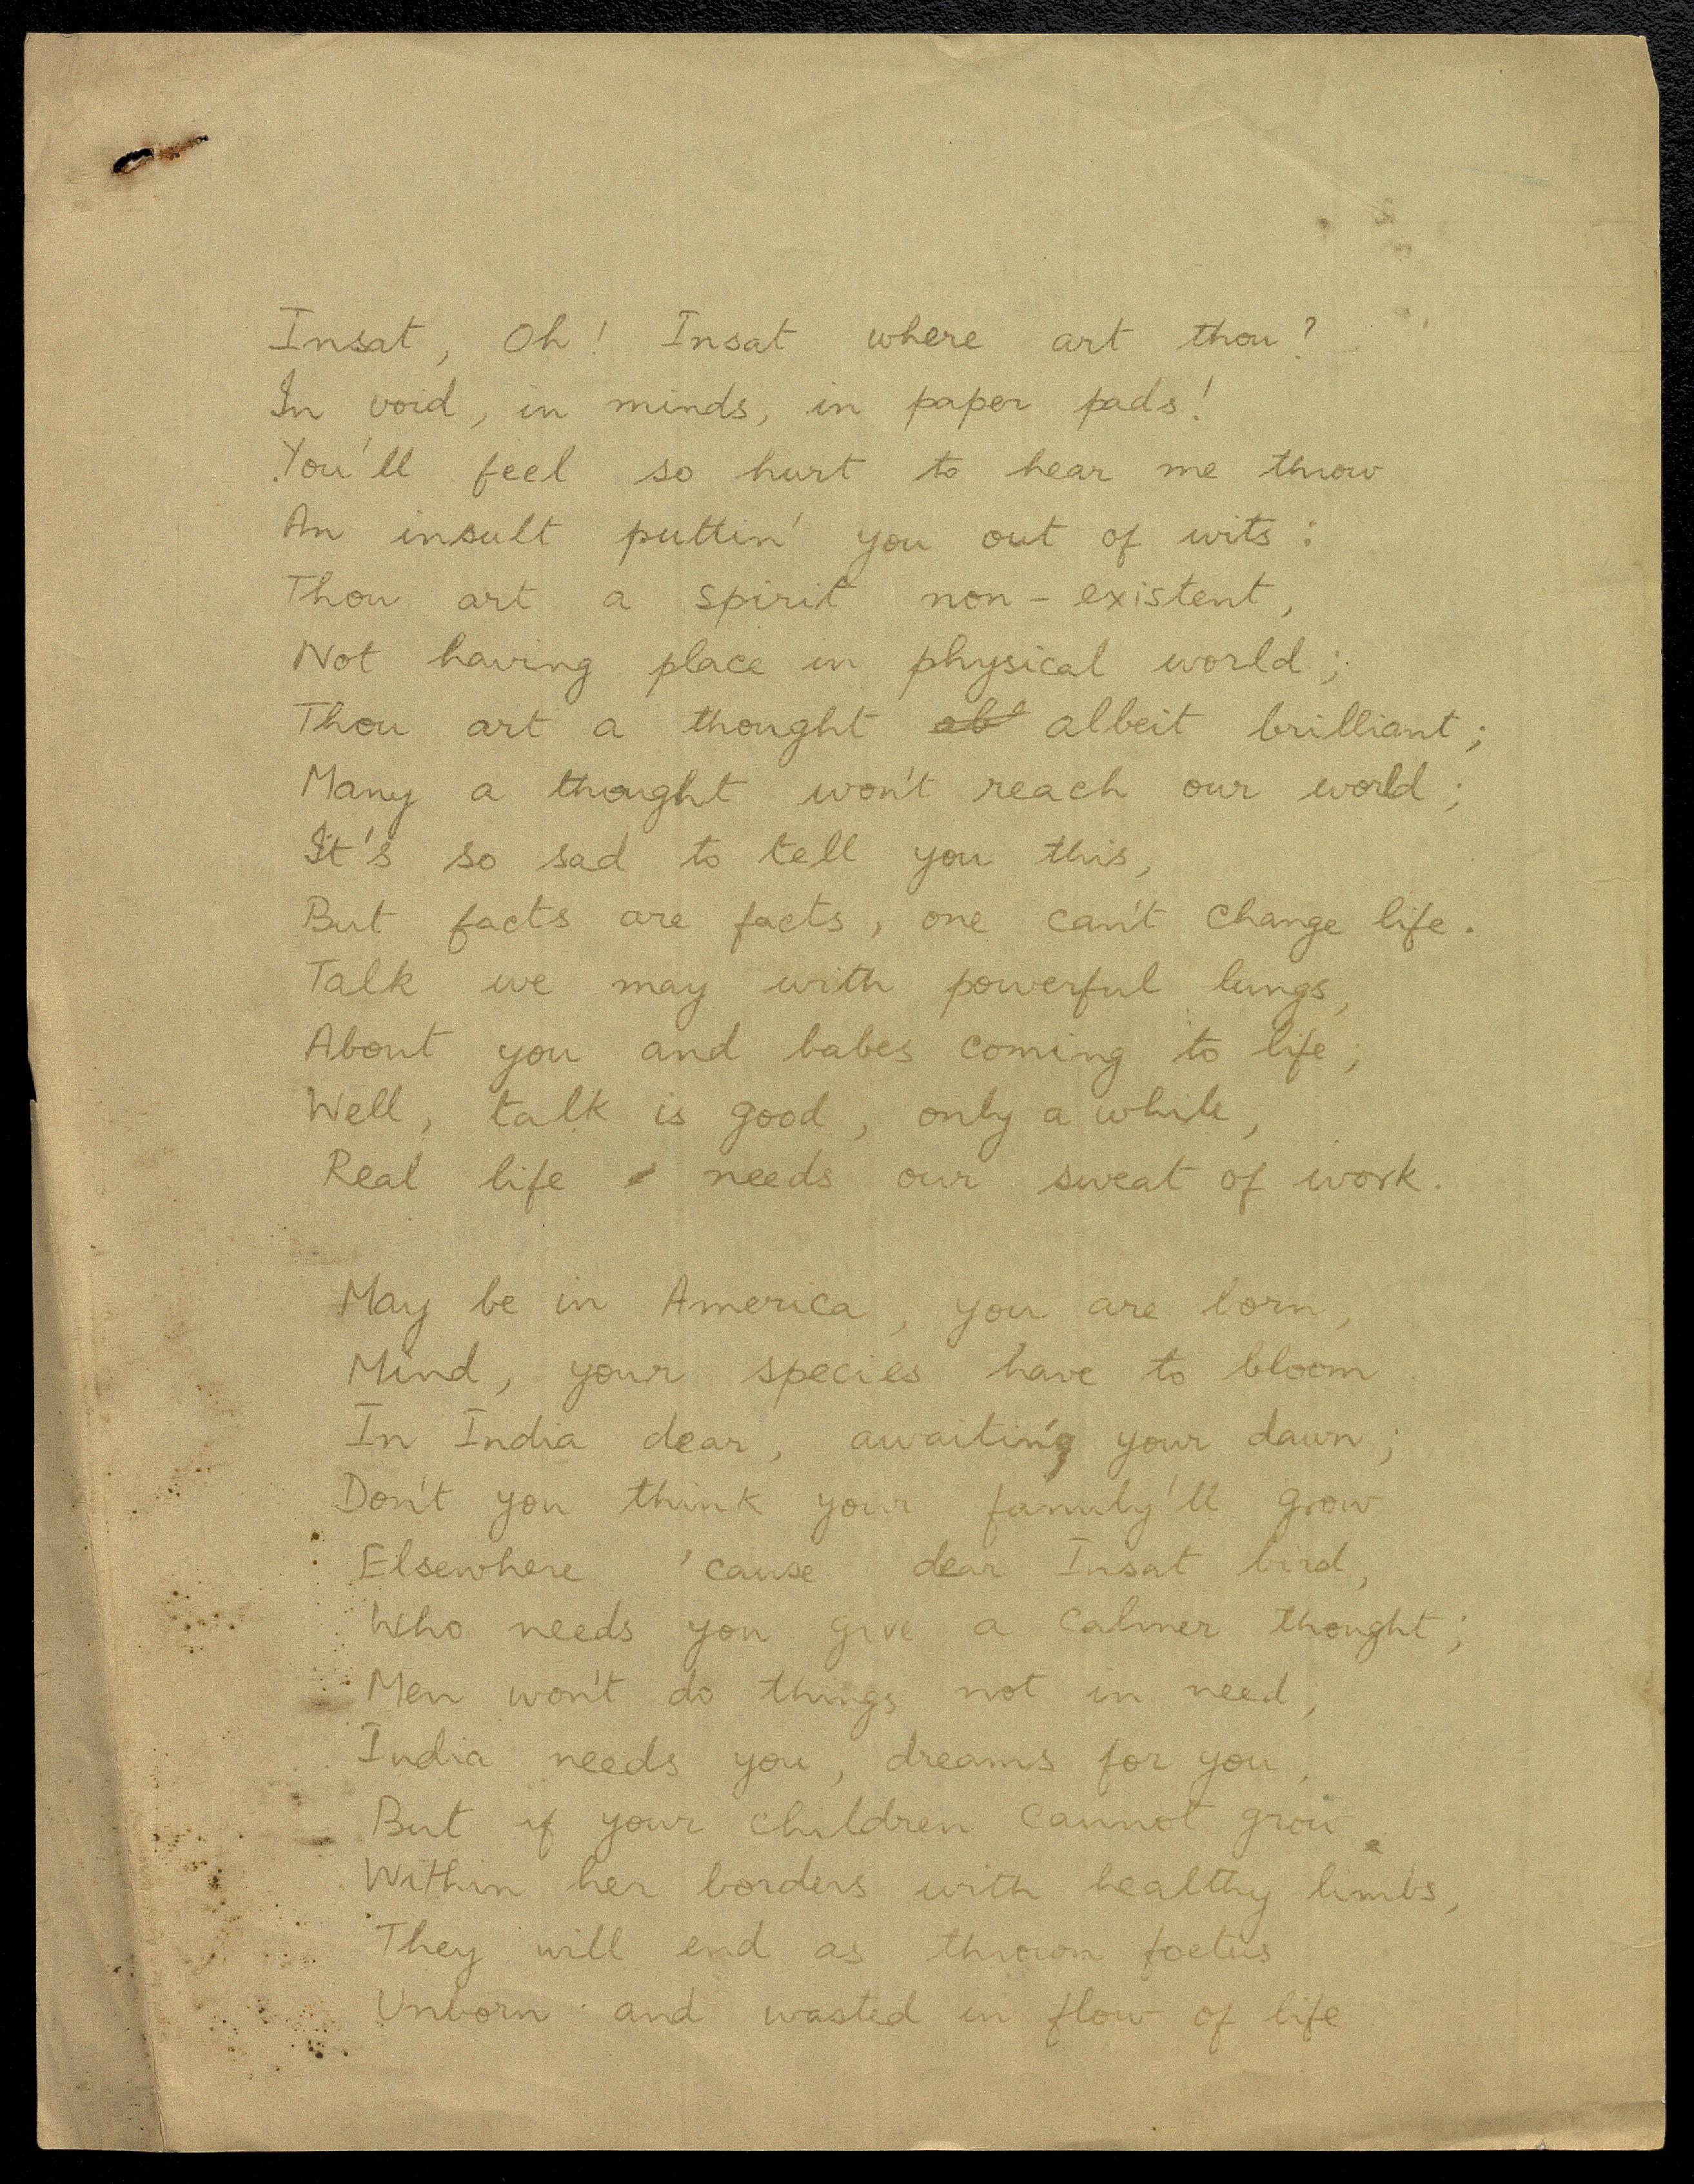 Insat, Oh! Insat where art thou?
In void, in minds, in paper pads!
You'll feel so hurt to hear me throw
An insult puttin' you out of wits:
Thou art a spirit non-existent,
Not having place in physical world;
Thou art a thought albeit brilliant;
Many a thought won't reach our world;
It's so sad to tell you this,
But facts are facts, one can't change life.
Talk we may with powerful lungs,
About you and babes coming to life;
Well, talk is good, only a while,
Real life needs our sweat of work.
May be in America, you are born,
Mind, your species have to bloom
In India dear, awaiting your dawn;
Don't you think your family'll grow
Elsewhere 'cause dear Insat bird,
Who needs you give a calmer thought;
Men won't do things not in need,
India needs you, dreams for you,
But if your children cannot grow
Within her borders with healthy limbs,
They will end as thrown foetus
Unborn and wasted in flow of life